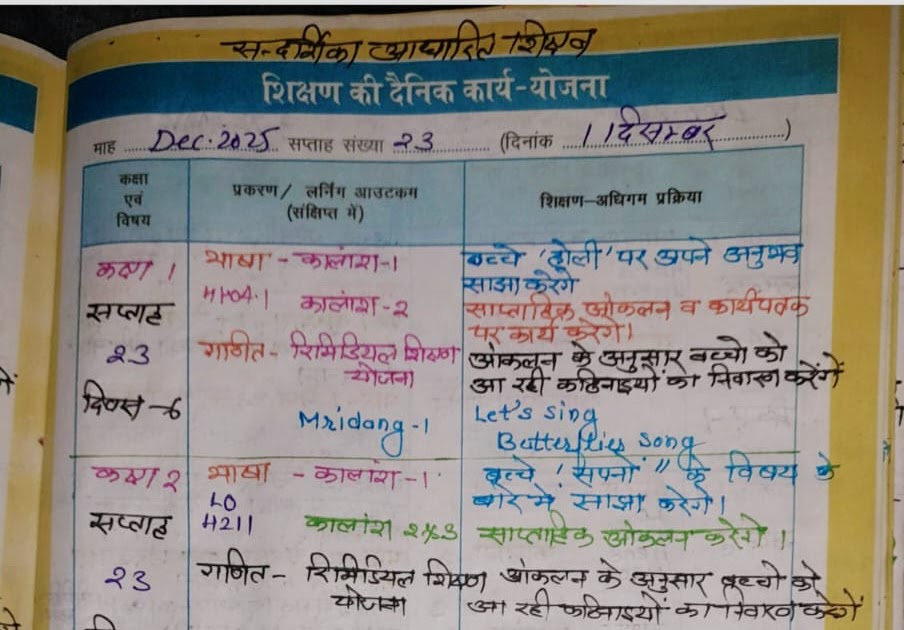 सन्दर्शिका आधारित शिक्षण
शिक्षण की दैनिक कार्य-योजना
माह Dec. 2025 सप्ताह संख्या 23 (दिनांक 11 दिसम्बर)
कक्षा एवं विषय
प्रकरण/ लर्निंग आउटकम (संक्षिप्त में)
शिक्षण-अधिगम प्रक्रिया
कक्षा 1 भाषा - कालांश-1 बच्चे 'होली' पर अपने अनुभव
साझा करेंगे
सप्ताह H104.1 कालांश-2 साप्ताहिक आंकलन व कार्यपत्रक
पर कार्य करेंगे।
23 गणित- रिमिडियल शिक्षण योजना आंकलन के अनुसार बच्चो को
आ रही कठिनाइयों का निवारण करेंगें
दिवस-6 Mridang-1 Let's sing
Butterflies song
कक्षा 2 भाषा - कालांश-1 बच्चे 'सपनों" के विषय के
बारे में साझा करेंगे।
सप्ताह LO H211 कालांश 2%3 साप्ताहिक आंकलन करेंगे।
23 गणित- रिमिडियल शिक्षण योजना आंकलन के अनुसार बच्चो को
आ रही कठिनाइयों का निवारण करेंगें